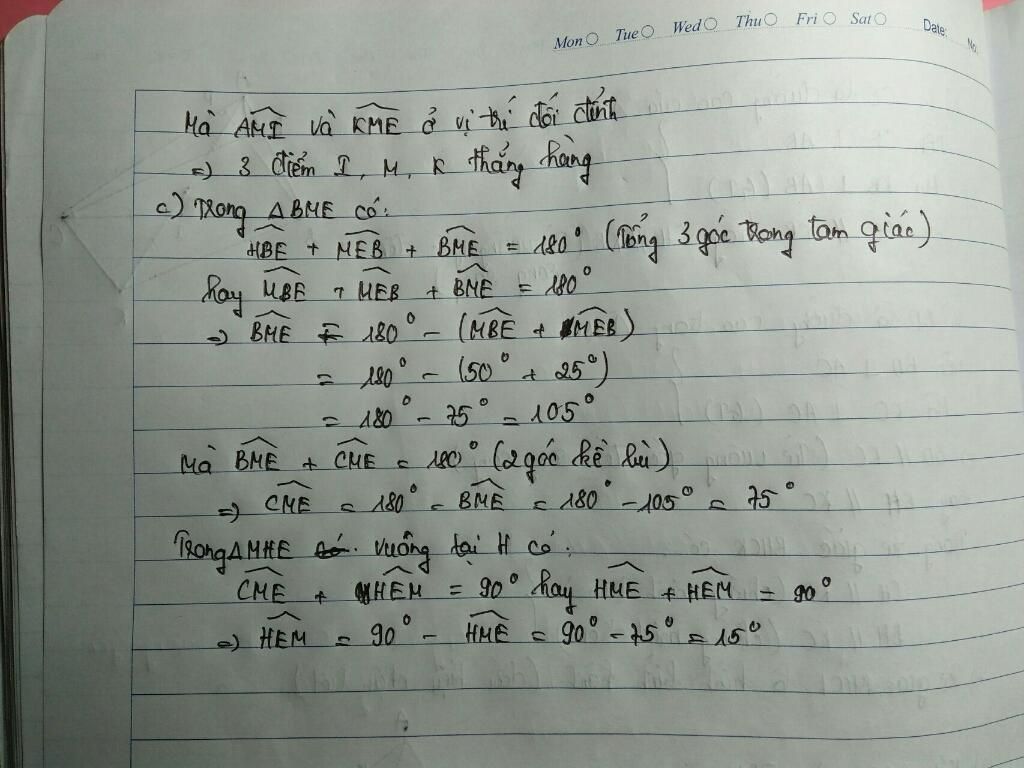 Mon Tue Wed Thu Fri Sat Date: No.
Mà AMI và KME ở vị trí đối đỉnh
=> 3 điểm I, M, K thẳng hàng
c) Trong ΔBME có:
HBE + MEB + BME = 180° (Tổng 3 góc trong tam giác)
hay MBE + MEB + BME = 180°
=> BME = 180° - (MBE + MEB)
= 180° - (50° + 25°)
= 180° - 75° = 105°
Mà BME + CME = 180° (2 góc kề bù)
=> CME = 180° - BME = 180° - 105° = 75°
Trong ΔMHE vuông tại H có:
CME + HEM = 90° hay HME + HEM = 90°
=> HEM = 90° - HME = 90° - 75° = 15°